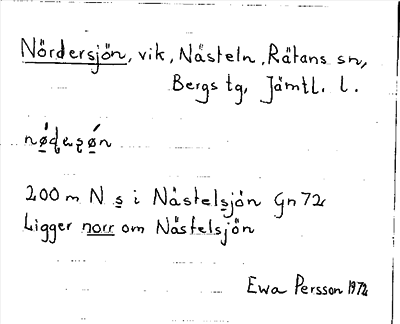 Nördersjön, vik, Nästeln, Rätans sn,
Bergs tg, Jämtl. l.
nø̀dεʂø̀n
200 m N s i Nästelsjön Gn 72
Ligger norr om Nästelsjön
Ewa Persson 1972